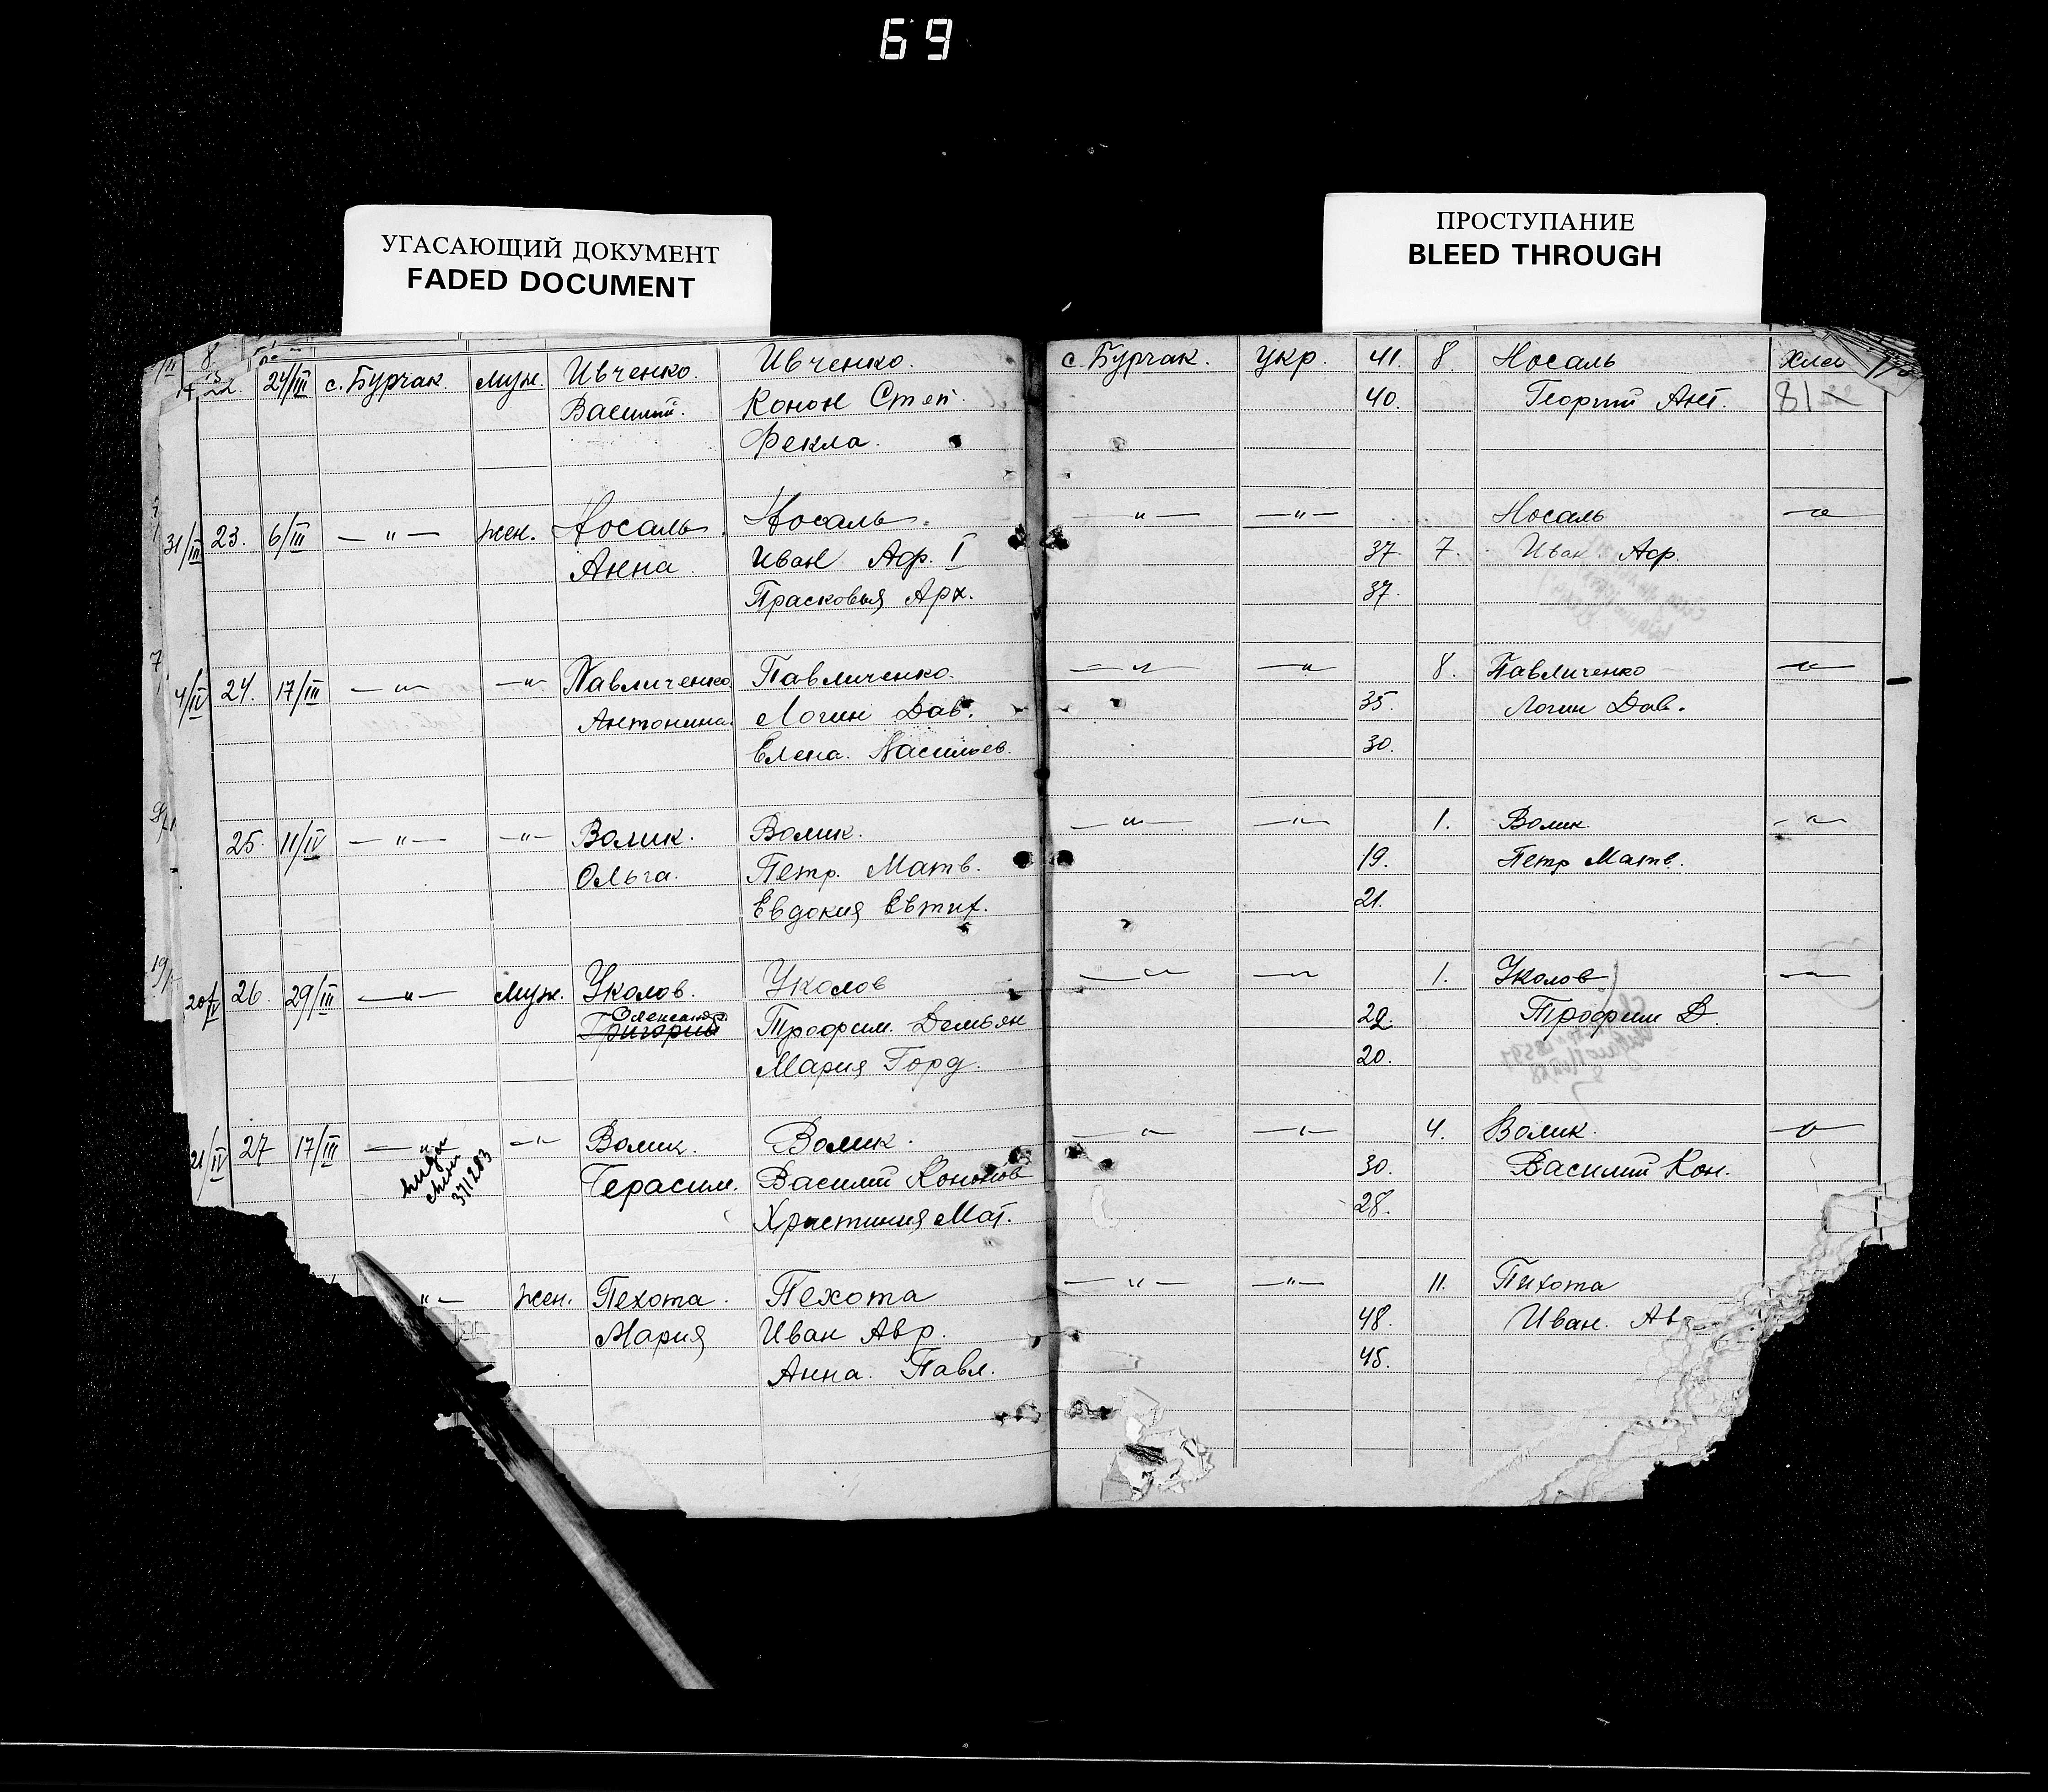 69
УГАСАЮЩИЙ ДОКУМЕНТ
FADED DOCUMENT
ПРОСТУПАНИЕ
BLEED THROUGH
22. 24/III с. Бурчак муж. Ивченко. Ивченко. с. Бурчак. укр. 41. 8. Носаль
Василий. Конон Степ. 40. Георгий Ант. 81
Фекла.
31/III 23. 6/III — " — жен. Носаль. Носаль. — " — — " — Носаль — " —
Анна. Иван Аф. I 37. 7. Иван. Аф.
Прасковья Арх. 37.
4/IV 24. 17/III — " — — " — Павличенко. Павличенко. — " — — " 8. Павличенко — " —
Антонина. Логин Дав. 35. Логин Дав.
Елена. Васильев. 30.
25. 11/IV — " — — " — Волик. Волик. — " — — " — 1. Волик. — " —
Ольга. Петр. Матв. 19. Петр Матв.
Евдокия Евтих. 21.
20/IV 26. 29/III — " — муж. Уколов. Уколов — " — — " — 1. Уколов — " —
Александр.
Григорий Трофим. Демьян 22. Трофим Д.
Мария Горд. 20.
21/IV 27 17/III — " — — " Волик. Волик. — " — — " — 4. Волик. — " —
371283 Герасим. Василий Кононов 30. Василий Кон.
Христиния Мат. 28.
" — жен. Пехота. Пехота — " — — " — 11. Пихота
Мария Иван Авр. 48. Иван. Ав
Анна. Павл. 45.